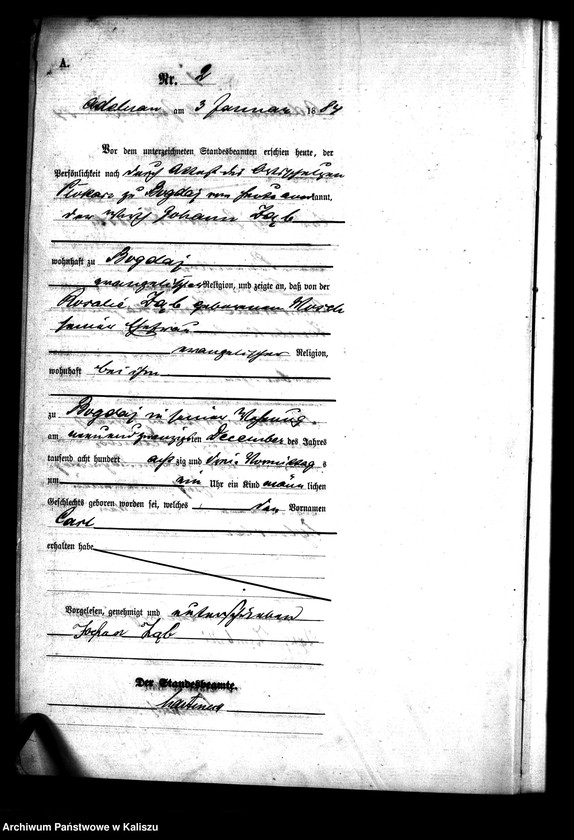 A.
Nr. 2
Adelnau am 3 Januar 1884
Vor dem unterzeichneten Standesbeamten erschien heute, der
Persönlichkeit nach durch Attest des Ortsschulzen
zu Bogdaj von heute anerkannt,
der Wirth Johann Ząb
wohnhaft zu Bogdaj
evangelischer Religion, und zeigte an, daß von der
Rosalie Ząb geborenen
seiner Ehefrau
evangelischer Religion,
wohnhaft bei ihm
zu Bogdaj in seiner Wohnung
am neunundzwanzigsten December des Jahres
tausend acht hundert achtzig und drei Vormittags
um ein Uhr ein Kind männlichen
Geschlechts geboren worden sei, welches den Vornamen
Carl
erhalten habe
Vorgelesen, genehmigt und unterschrieben
Johan Ząb
Der Standesbeamte.
Archiwum Państwowe w Kaliszu